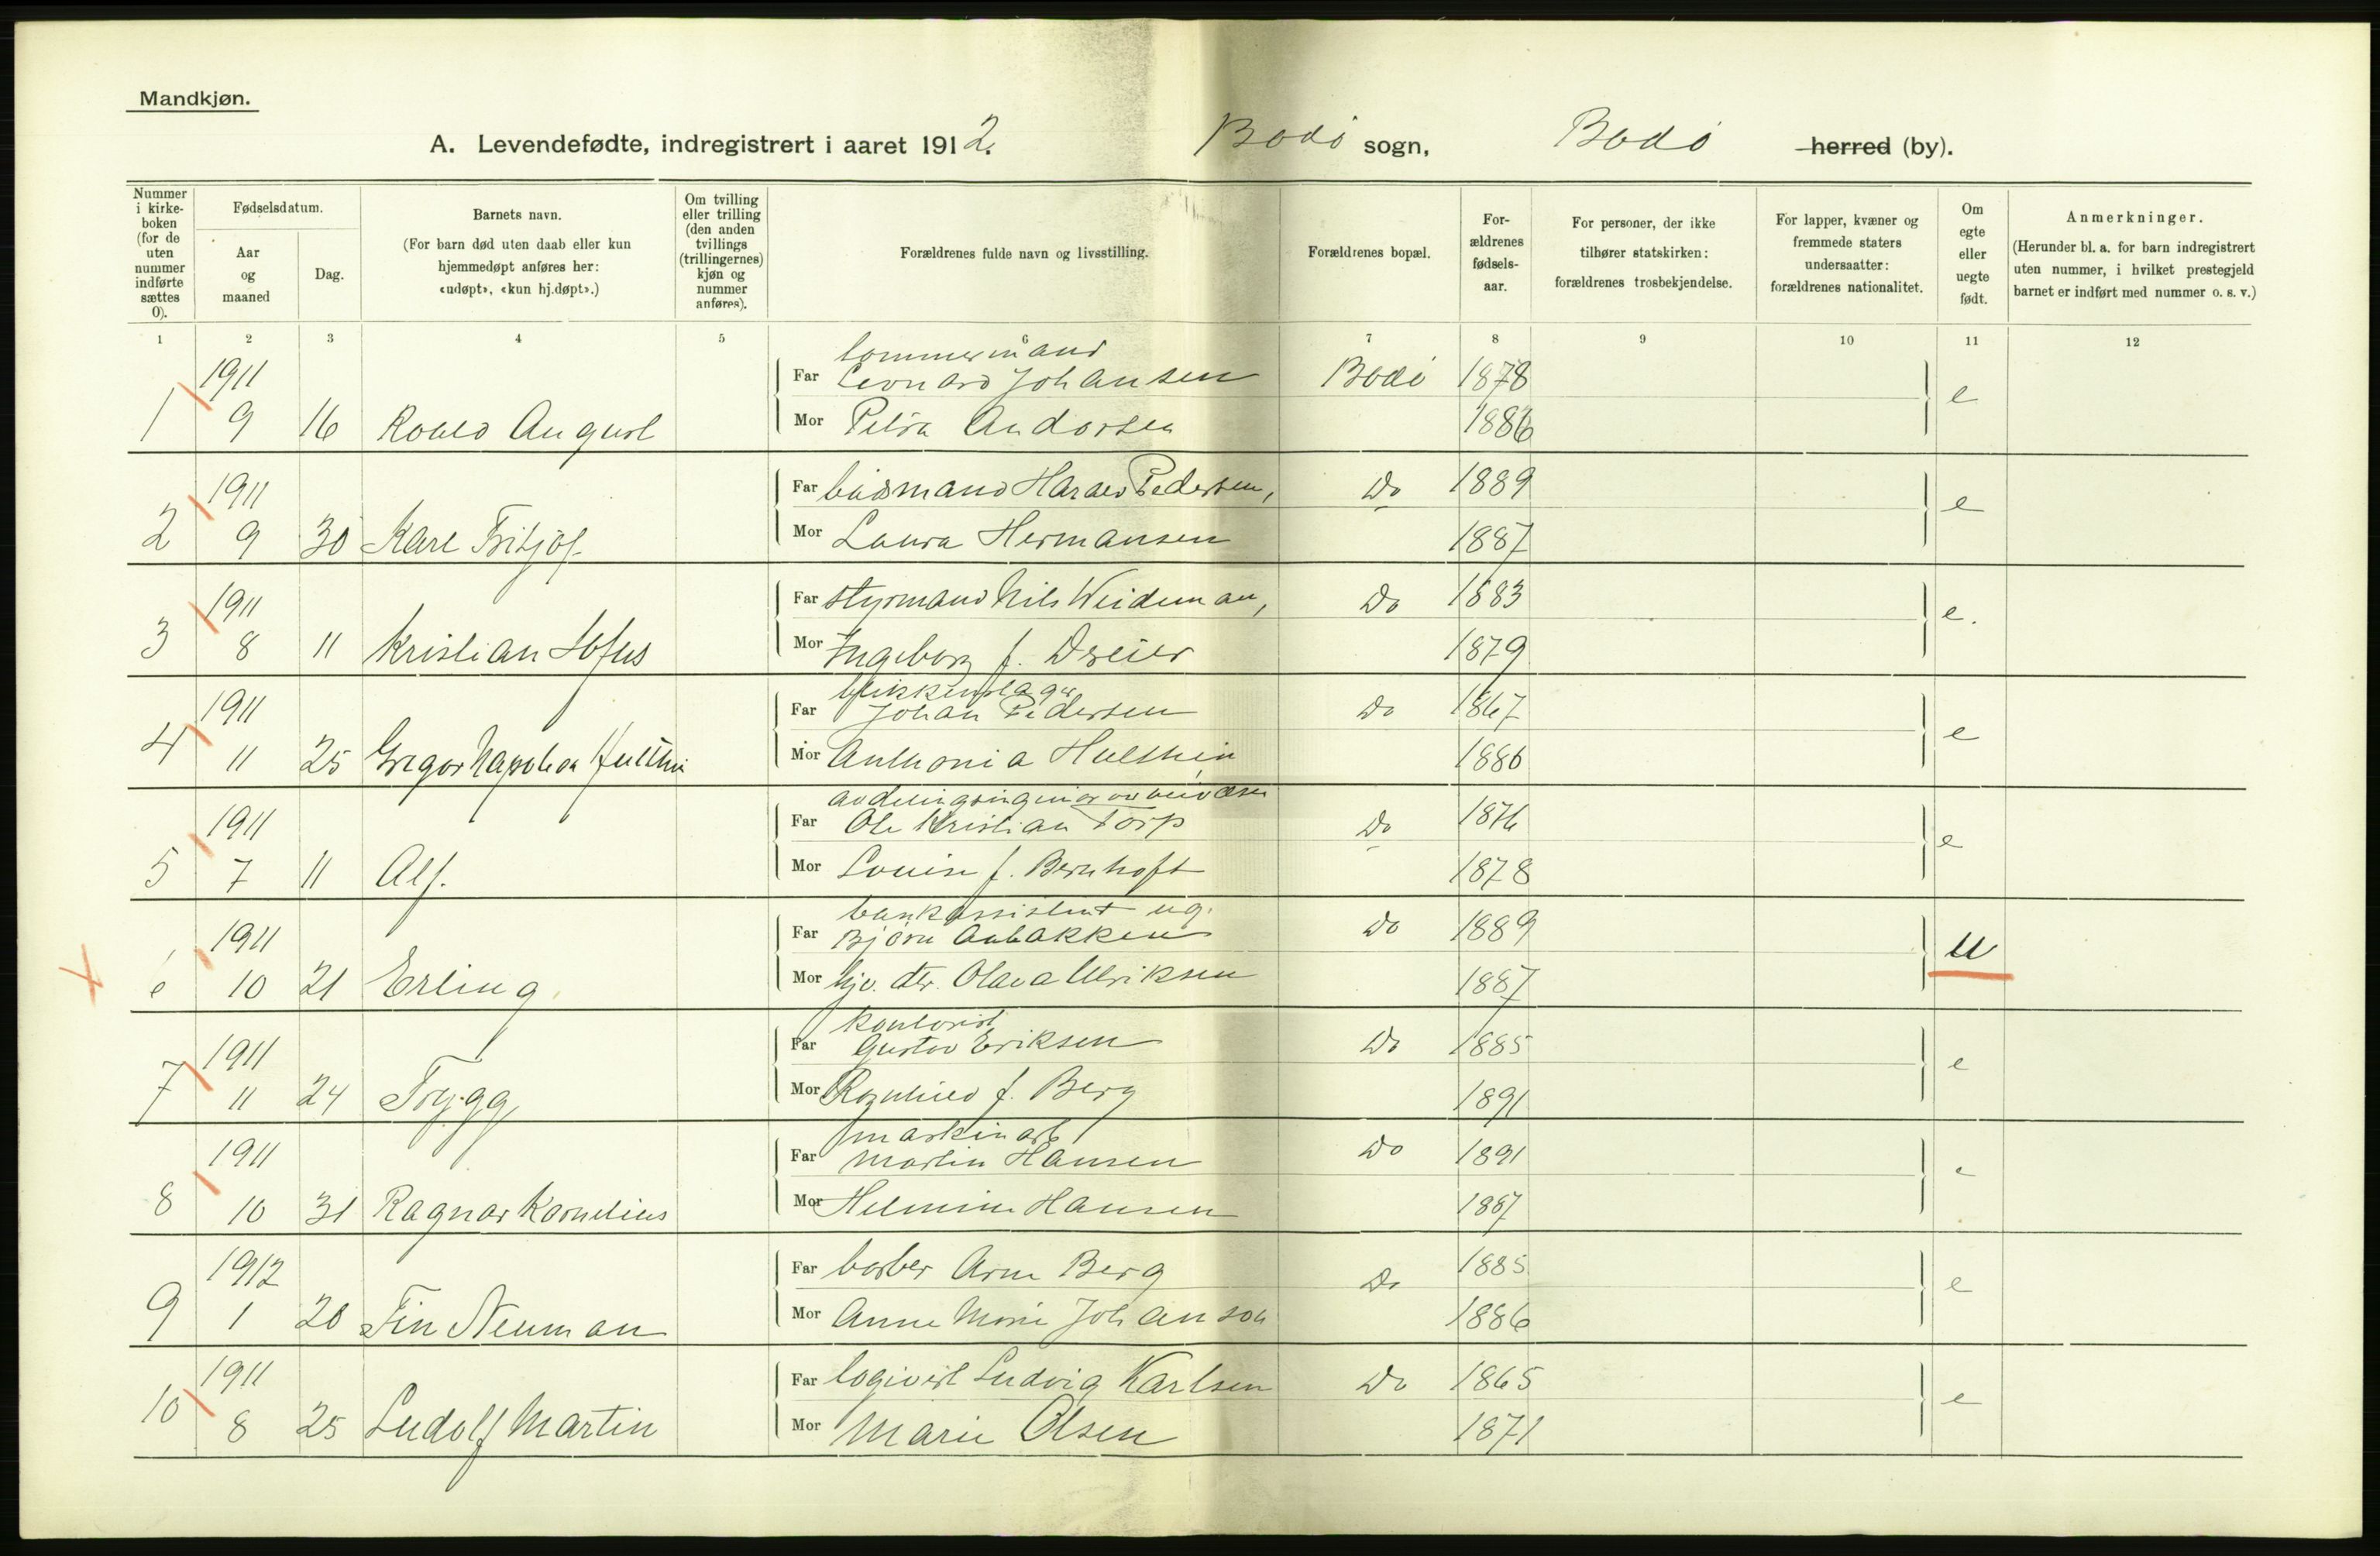 Mandkjøn.
A. Levendefødte, indregistrert i aaret 1912. Bodø sogn, Bodø herred (by).
Nummer i kirke-boken (for de uten nummer indførte sættes 0).
Fødselsdatum.
Aar og maaned
Dag.
Barnets navn.
(For barn død uten daab eller kun hjemmedøpt anføres her: «udøpt», «kun hj.døpt».)
Om tvilling eller trilling (den anden tvillings (trillingernes) kjøn og nummer anføres).
Forældrenes fulde navn og livsstilling.
Forældrenes bopæl.
For-ældrenes fødsels-aar.
For personer, der ikke tilhører statskirken: forældrenes trosbekjendelse.
For lapper, kvæner og fremmede staters undersaatter: forældrenes nationalitet.
Om egte eller uegte født.
Anmerkninger.
(Herunder bl. a. for barn indregistrert uten nummer, i hvilket prestegjeld barnet er indført med nummer o. s. v.)
1 2 3 4 5 6 7 8 9 10 11 12
tømmermand
1911 Far Leonard Johansen Bodø 1878
1 9 16 Roald August Mor Petra Andorsen 1886 e
1911 Far baadsmand Harald Pedersen, Do 1889
2 9 30 Karl Fritjof Mor Laura Hermansen 1887 e
1911 Far styrmand Nils Weideman, Do 1883
3 8 11 Kristian Sofus Mor Ingeborg f. Dreier 1879 e.
blikkenslager
1911 Far Johan Pedersen Do 1867
4 11 25 Gregor Napoleon Mor Anthonia Hulthin 1886 e
1911 Far Ole Kristian Torp Do 1876
5 7 11 Alf. Mor Louise f. Bernhoft 1878 e
bankassistent ug.
1911 Far Bjørn Do 1889
6 10 21 Erling Mor hjv. dtr. Olava Ulriksen 1887 u
kontorist
1911 Far Gustav Eriksen Do 1885
7 11 24 Trygg Mor Ragnhild f. Berg 1891 e
maskinarb
1911 Far Martin Hansen Do 1891
8 10 31 Ragnar Kornelius Mor Helmine Hansen 1887 e
1912 Far barber Arne Berg Do 1885
9 1 20 Fin Neuman Mor Anne Marie Johanson 1886 e
1911 Far logivert Ludvig Karlsen Do 1865
10 8 25 Ludolf Martin Mor Marie Olsen 1871 e